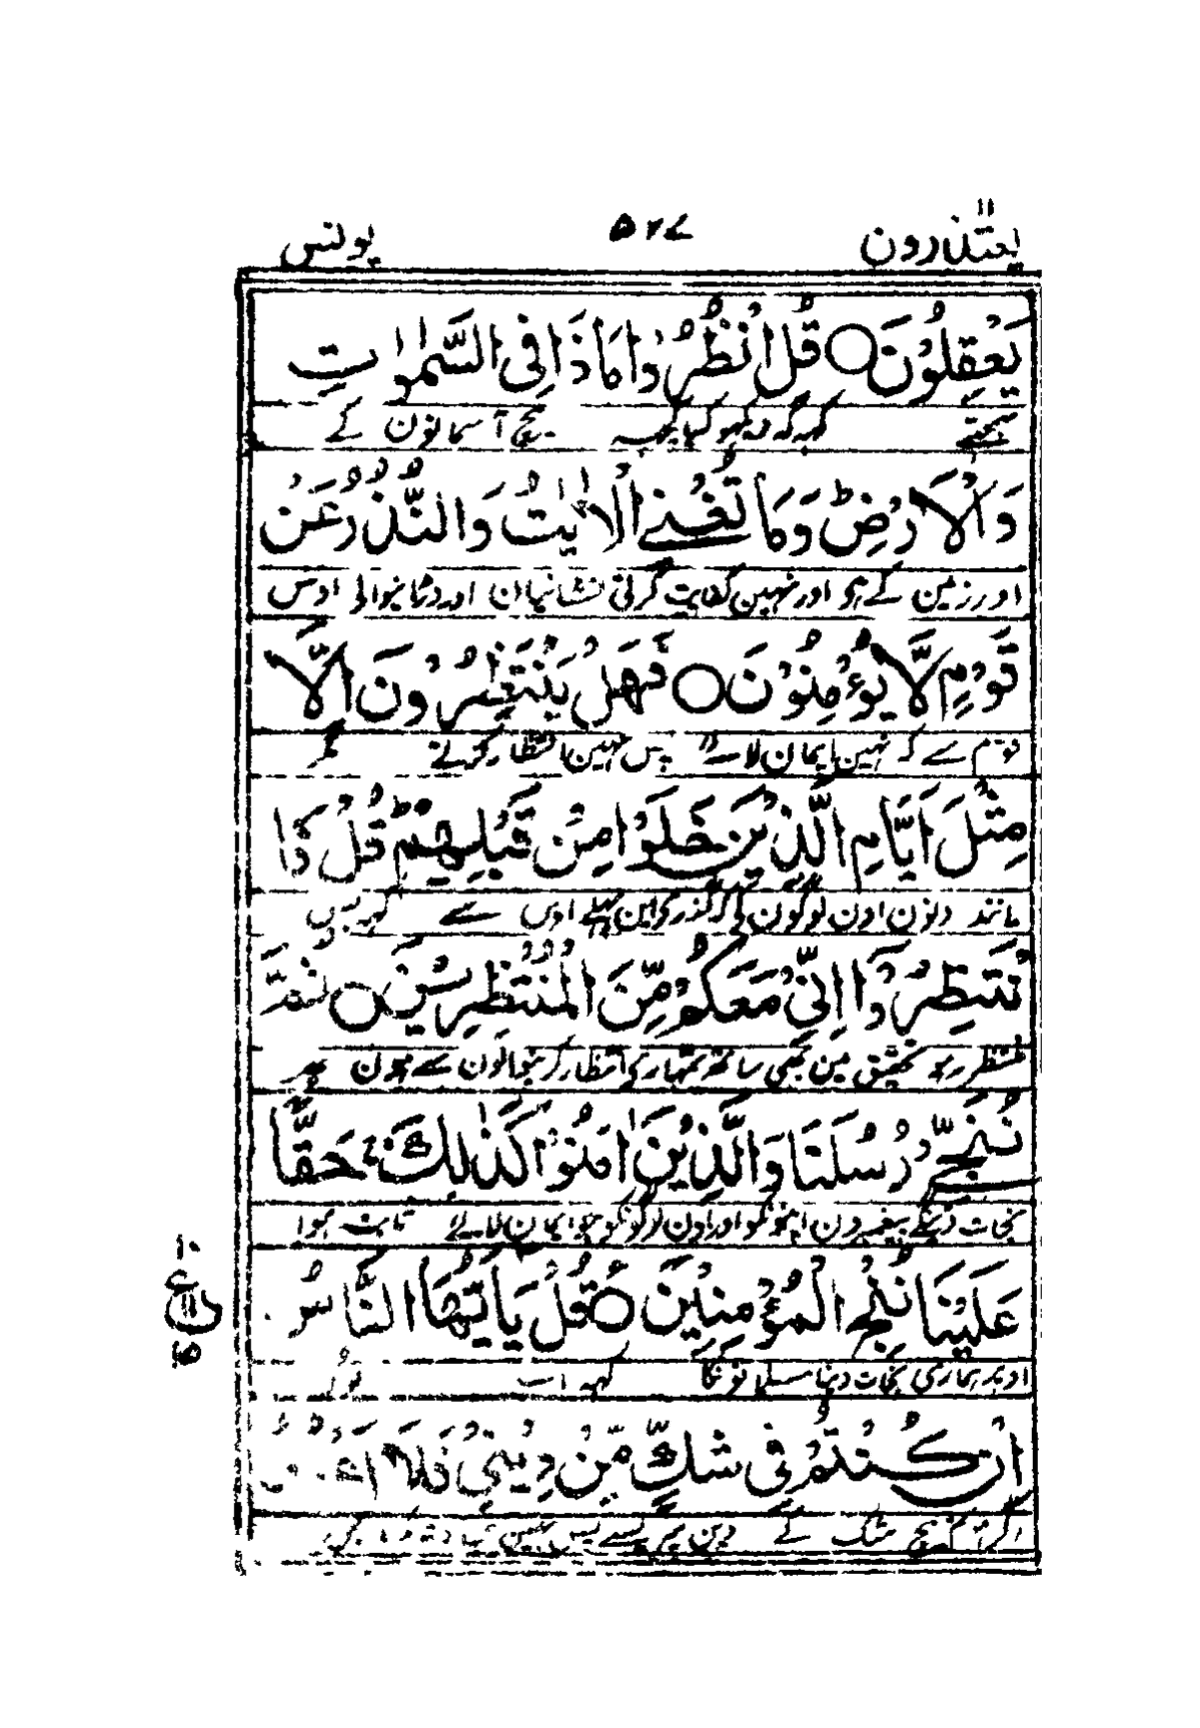 یعتذرون ۱۱ ۵۲۷ یونس
يَعْقِلُوْنَ ○ قُلِ انْظُرُوْا مَاذَا فِى السَّمٰوٰتِ
سمجھتے کہہ کہ دیکھو کیا کچھ ہے بیچ آسمانون کے
وَالْاَرْضِ ؕ وَمَا تُغْنِى الْاٰيٰتُ وَالنُّذُرُ عَنْ
اور زمین کے ہی اور نہین کفایت کرتی نشانیان اور ڈرانیوالی اوس
قَوْمٍ لَّا يُؤْمِنُوْنَ ○ فَهَلْ يَنْتَظِرُوْنَ اِلَّا
قوم سے کہ نہین ایمان لاتے پس نہین انتظار کرتے مگر
مِثْلَ اَيَّامِ الَّذِيْنَ خَلَوْا مِنْ قَبْلِهِمْ ؕ قُلْ فَا
مانند دنون اون لوگون کی کہ گذر گئے ہین پہلے اوس سے کہہ پس
نْتَظِرُوْۤا اِنِّىْ مَعَكُمْ مِّنَ الْمُنْتَظِرِيْنَ ○ ثُمَّ
منتظر رہو تحقیق مین بھی ساتھ تمہاری انتظار کرنیوالون سے ہون پھر
نُنَجِّىْ رُسُلَنَا وَالَّذِيْنَ اٰمَنُوْا كَذٰلِكَ ۚ حَقًّا
نجات دینگے پیغمبرون اپنونکو اور اون لوگونکو جو ایمان لائے ثابت ہوا
عَلَيْنَا نُنْجِ الْمُؤْمِنِيْنَ ○ قُلْ يٰۤاَيُّهَا النَّاسُ
۱۰ ع ۱۱
اوپر ہماری نجات دینا مسلمانونکا کہہ اے لوگو
اِنْ كُنْتُمْ فِىْ شَكٍّ مِّنْ دِيْنِىْ فَلَاۤ اَعْبُدُ
اگر ہو تم بیچ شک کے دین میرے سے پس نہین عبادت کرتا